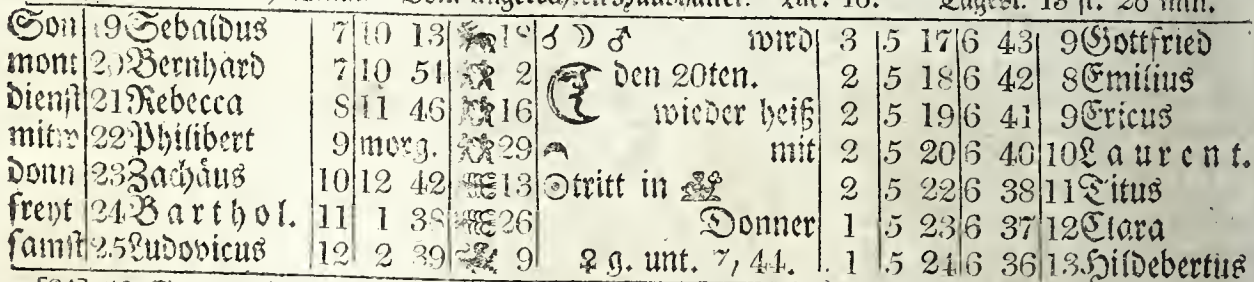 Son 19 Sebaldus 7 10 13 ☌ ☽ ♂ wird 3 5 17 6 43 9 Gottfried
mont 20 Bernhard 7 10 51 2 den 20ten. 2 5 18 6 42 8 Emilius
dienst 21 Rebecca 8 11 46 16 wieder heiß 2 5 19 6 41 9 Ericus
mitw 22 Philibert 9 morg. 29 mit 2 5 20 6 40 10 Laurent.
donn 23 Zachäus 10 12 42 13 ☉ tritt in 2 5 22 6 38 11 Titus
freyt 24 Barthol. 11 1 38 26 Donner 1 5 23 6 37 12 Clara
samst 25 Ludovicus 12 2 39 9 ♀ g. unt. 7, 44. 1 5 24 6 36 13 Hildebertus